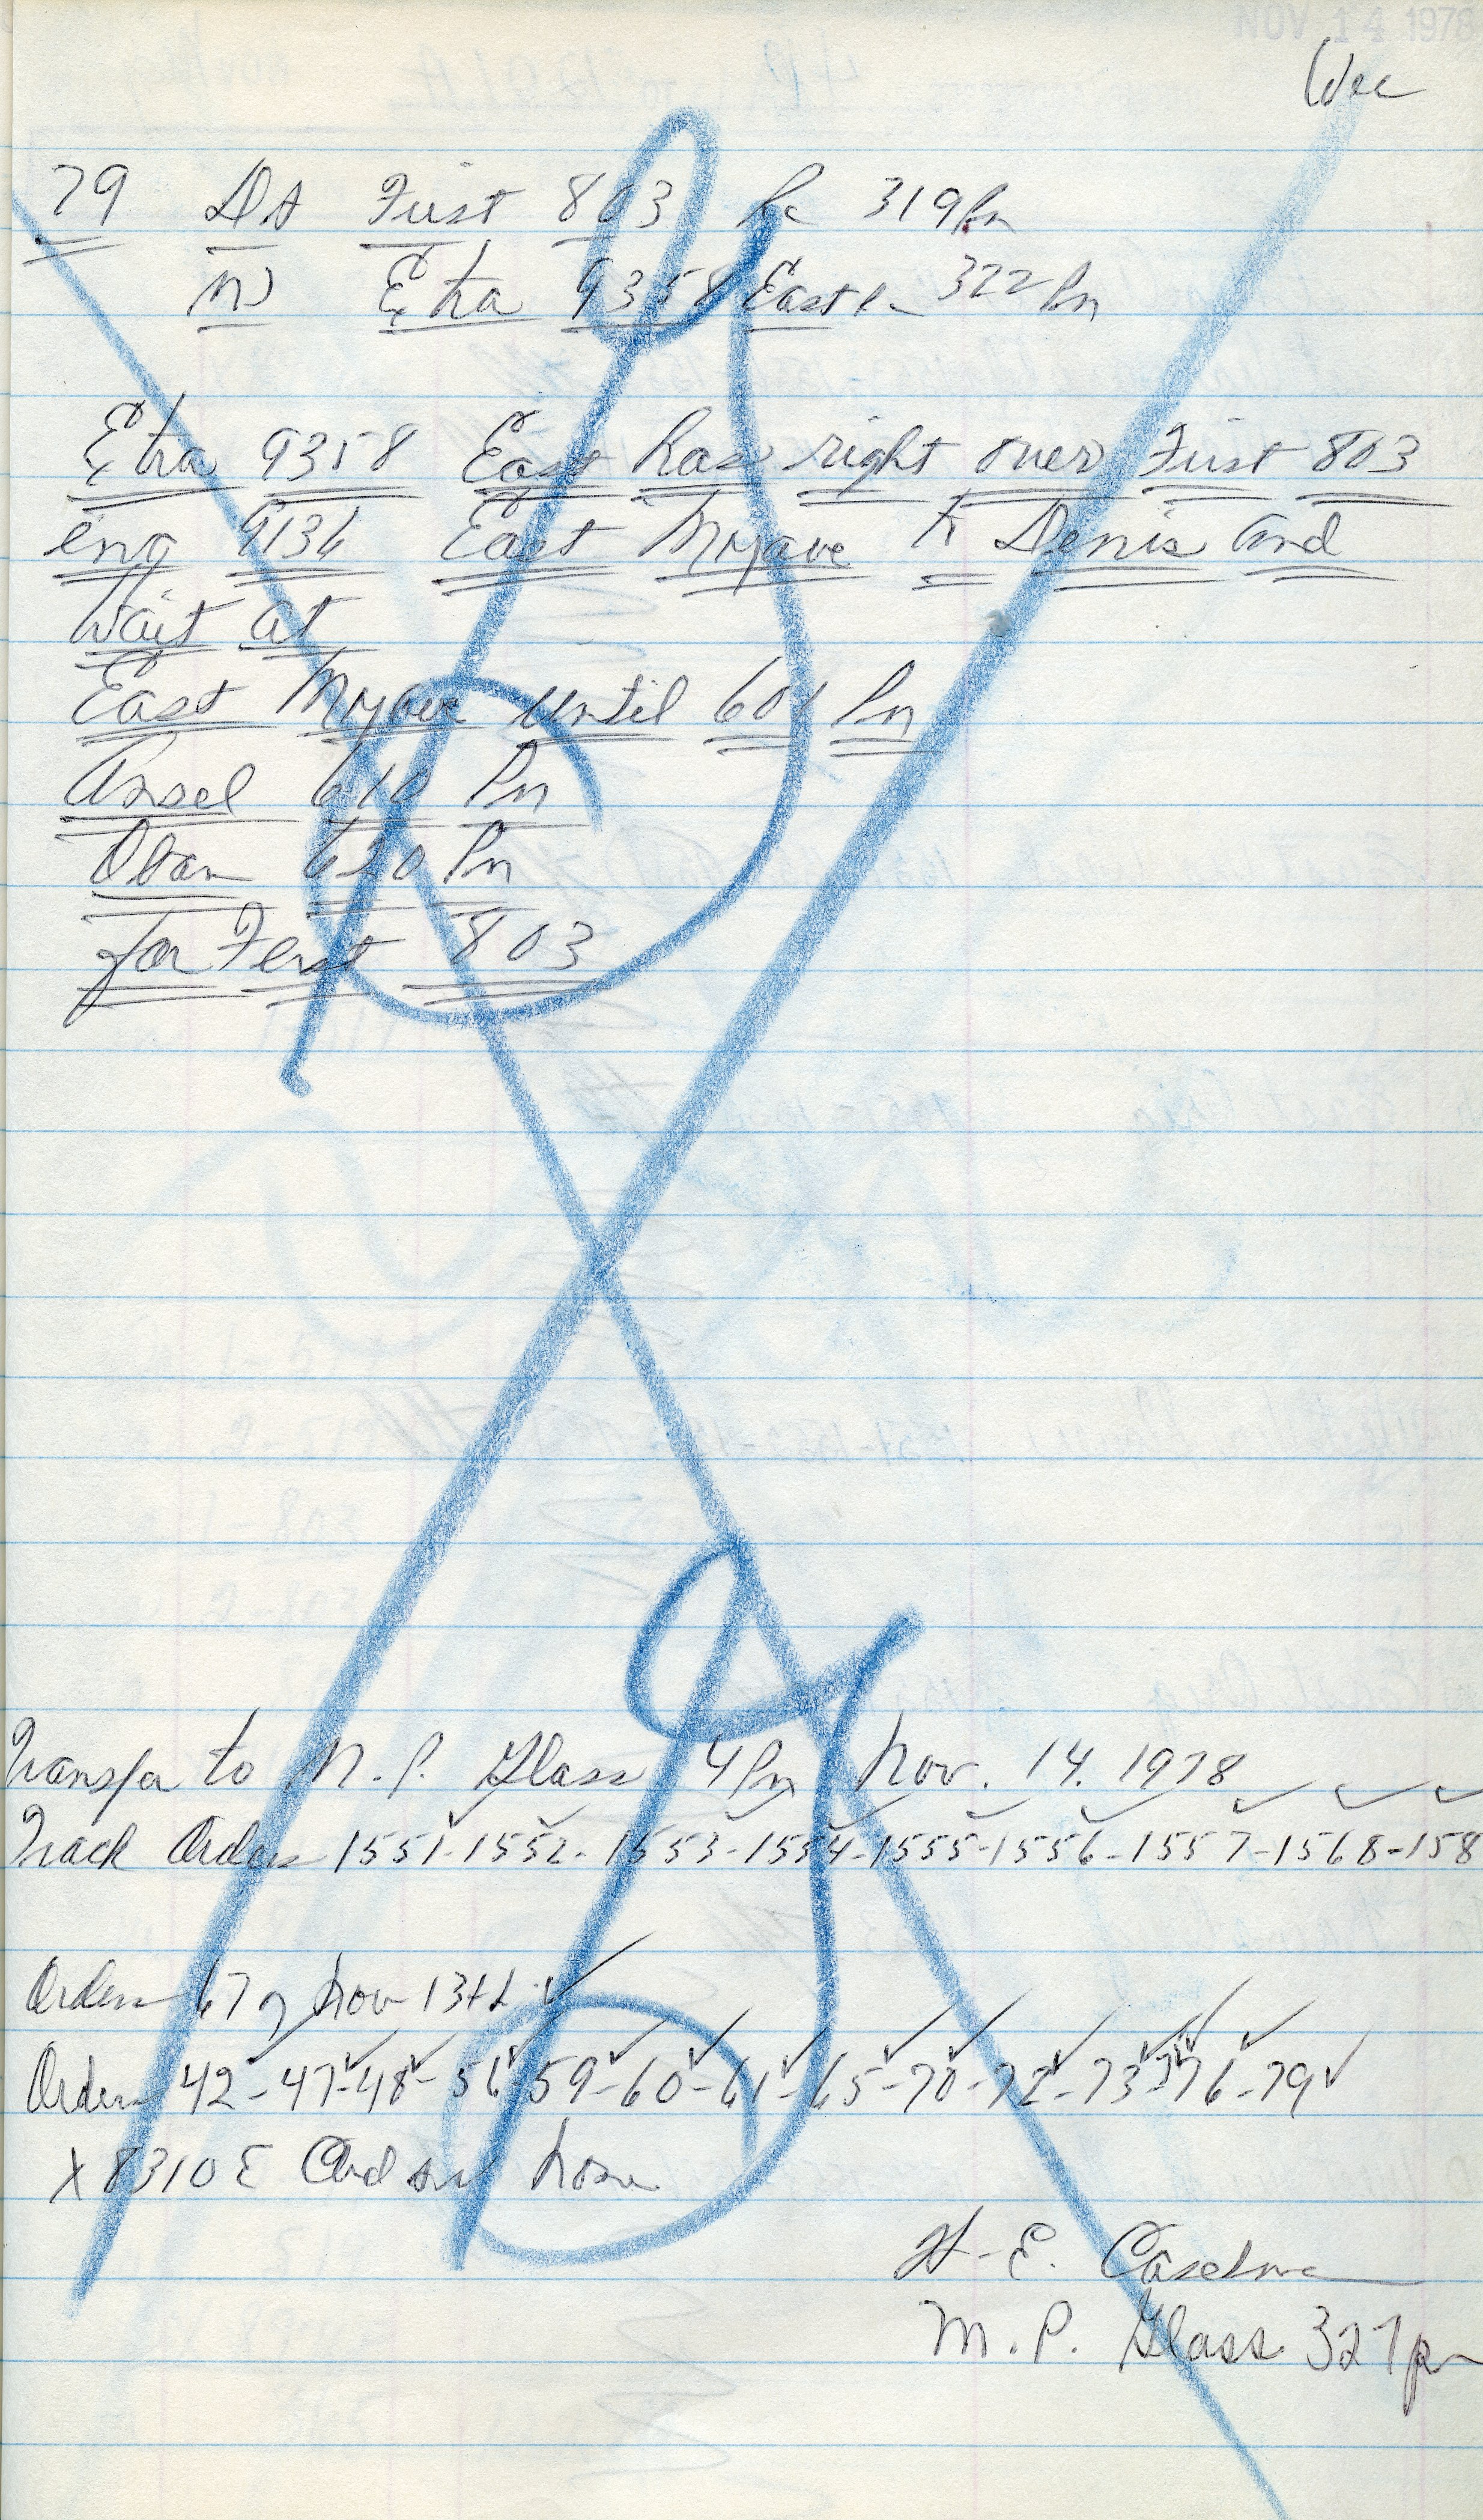 NOV 14 1978
Wec
79 DS First 803 Rc 319 Pm
Extra 9358 East 322 Pm
Extra 9358 East has right over First 803
eng 9136 East Mojave to Denis and
Wait at
East Mojave until 601 Pm
Ansel 610 Pm
Oban 620 Pm
for First 803
Transfer to M. P. Glass 4 Pm Nov. 14. 1978
Track Orders 1551-1552-1553-1554-1555-1556-1557-1568-158
Orders 67 of Nov 13th
Orders 42-47-48-56-59-60-61-65-70-72-73-76-79
X 8310 E
H. E.
M. P. Glass 327 pm